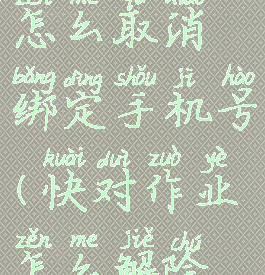 zěn me qǔ xiāo
怎么取消
bǎng dìng shǒu jī hào
绑定手机号
kuài duì zuò yè
(快对作业
zěn me jiě chú
怎么解除